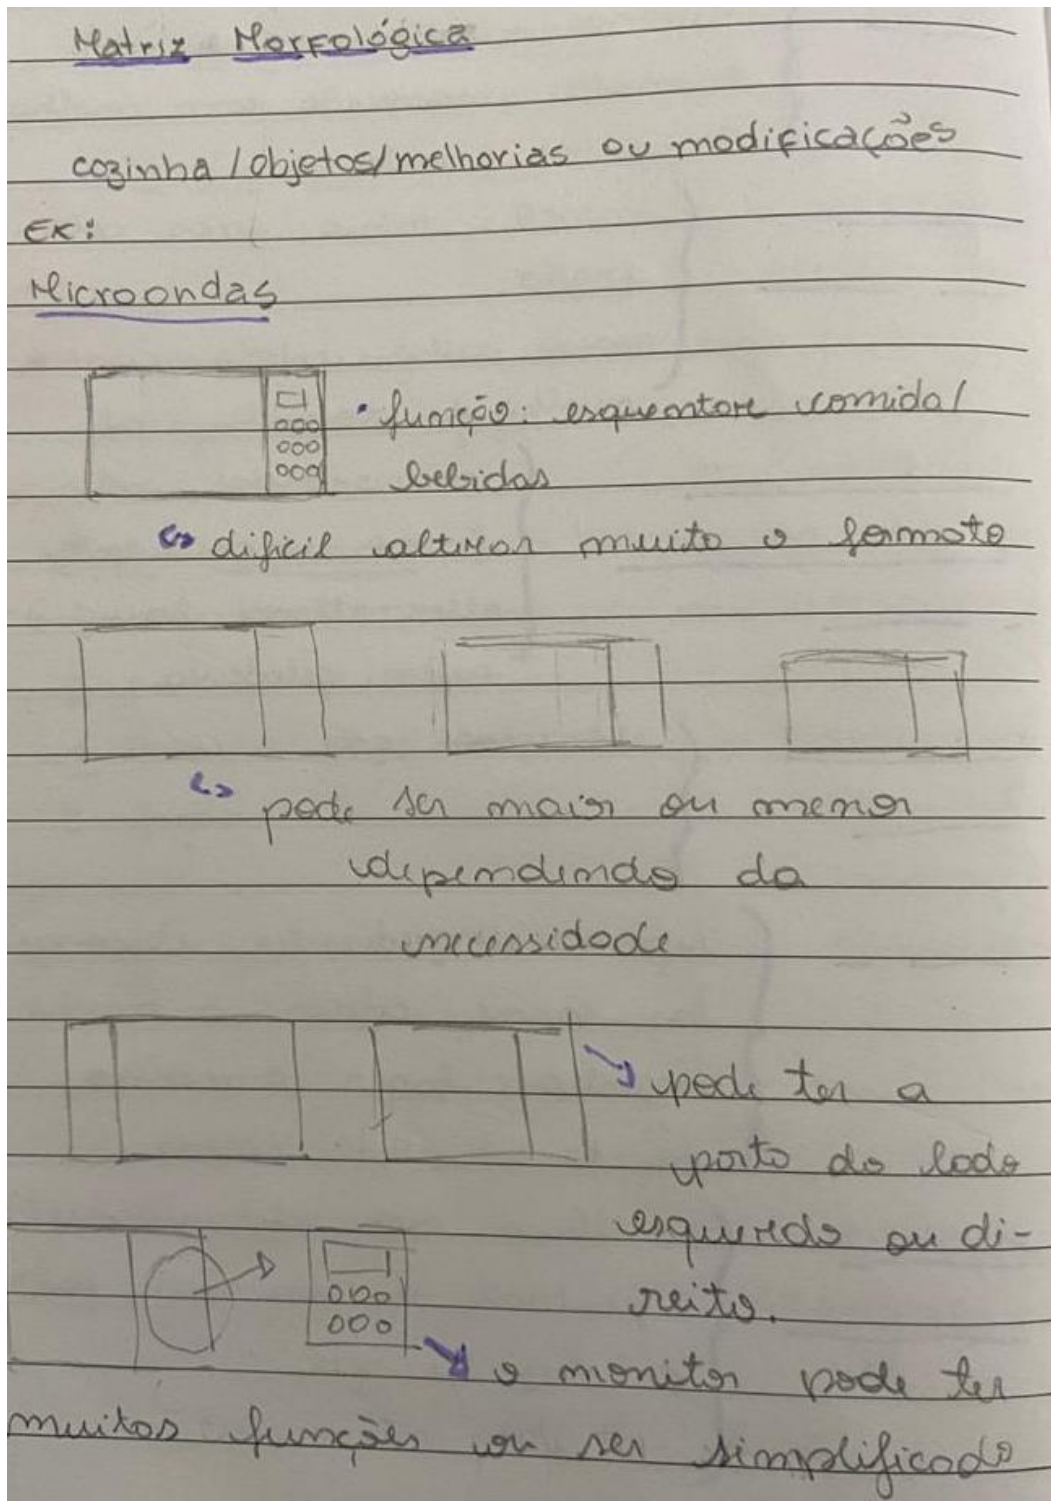 Matriz Morfológica
cozinha/objetos/melhorias ou modificações
Ex:
Microondas
• função: esquentar comida/
bebidas
↳ dificil alterar muito o formato
↳ pode ser maior ou menor
dependendo da
necessidade
pode ter a
porta do lado
esquerdo ou di-
reito.
o monitor pode ter
muitas funções ou ser simplificado